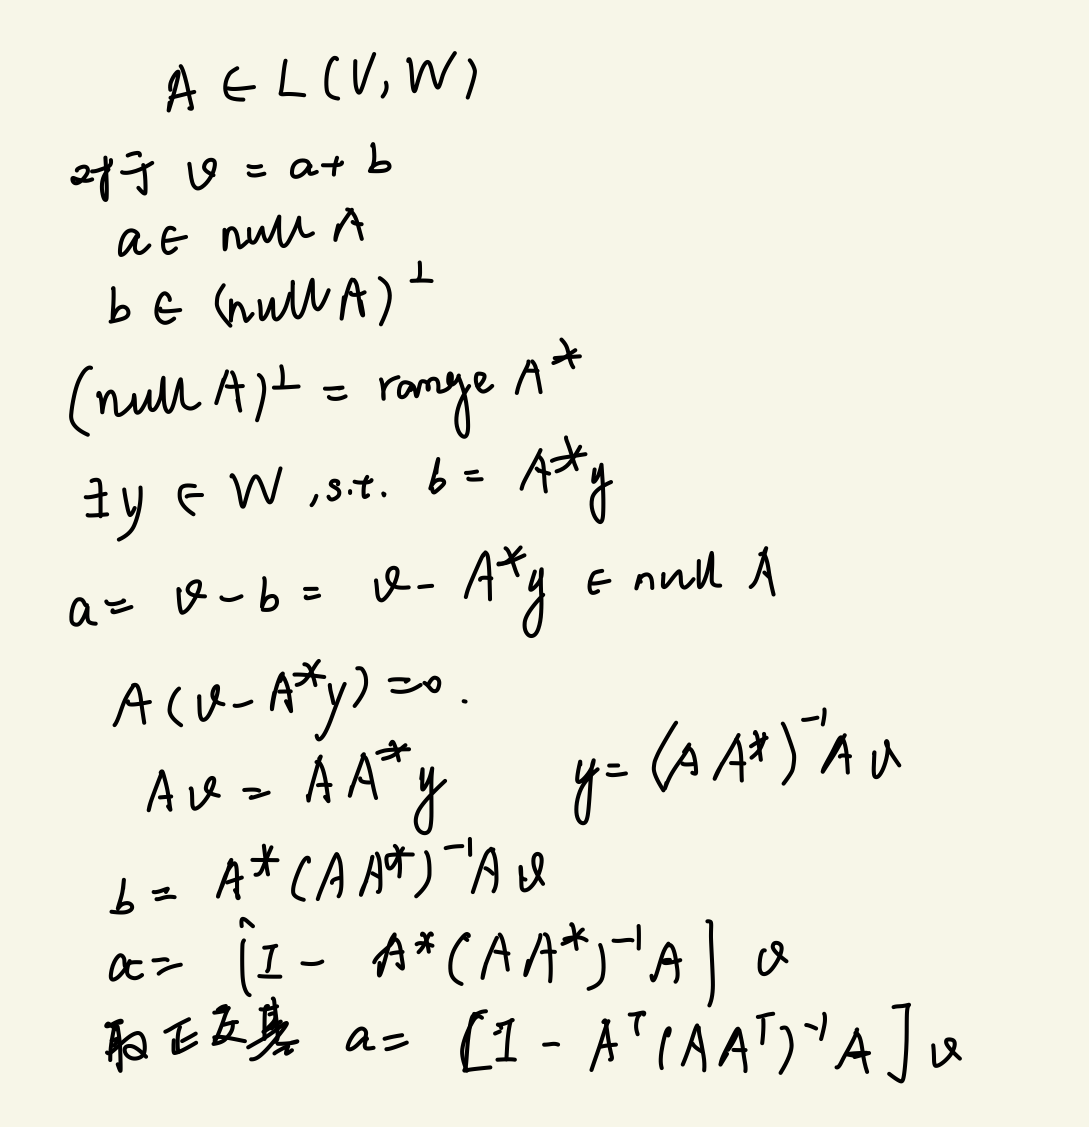 A ∈ L(V, W)
对于 v = a + b
a ∈ null A
b ∈ (null A)^⊥
(null A)^⊥ = range A^*
∃y ∈ W, s.t. b = A^*y
a = v - b = v - A^*y ∈ null A
A(v - A^*y) = 0.
Av = AA^*y y = (AA^*)^{-1}Av
b = A^*(AA^*)^{-1}Av
a = [I - A^*(AA^*)^{-1}A]v
取正交基 a = [I - A^T(AA^T)^{-1}A]v